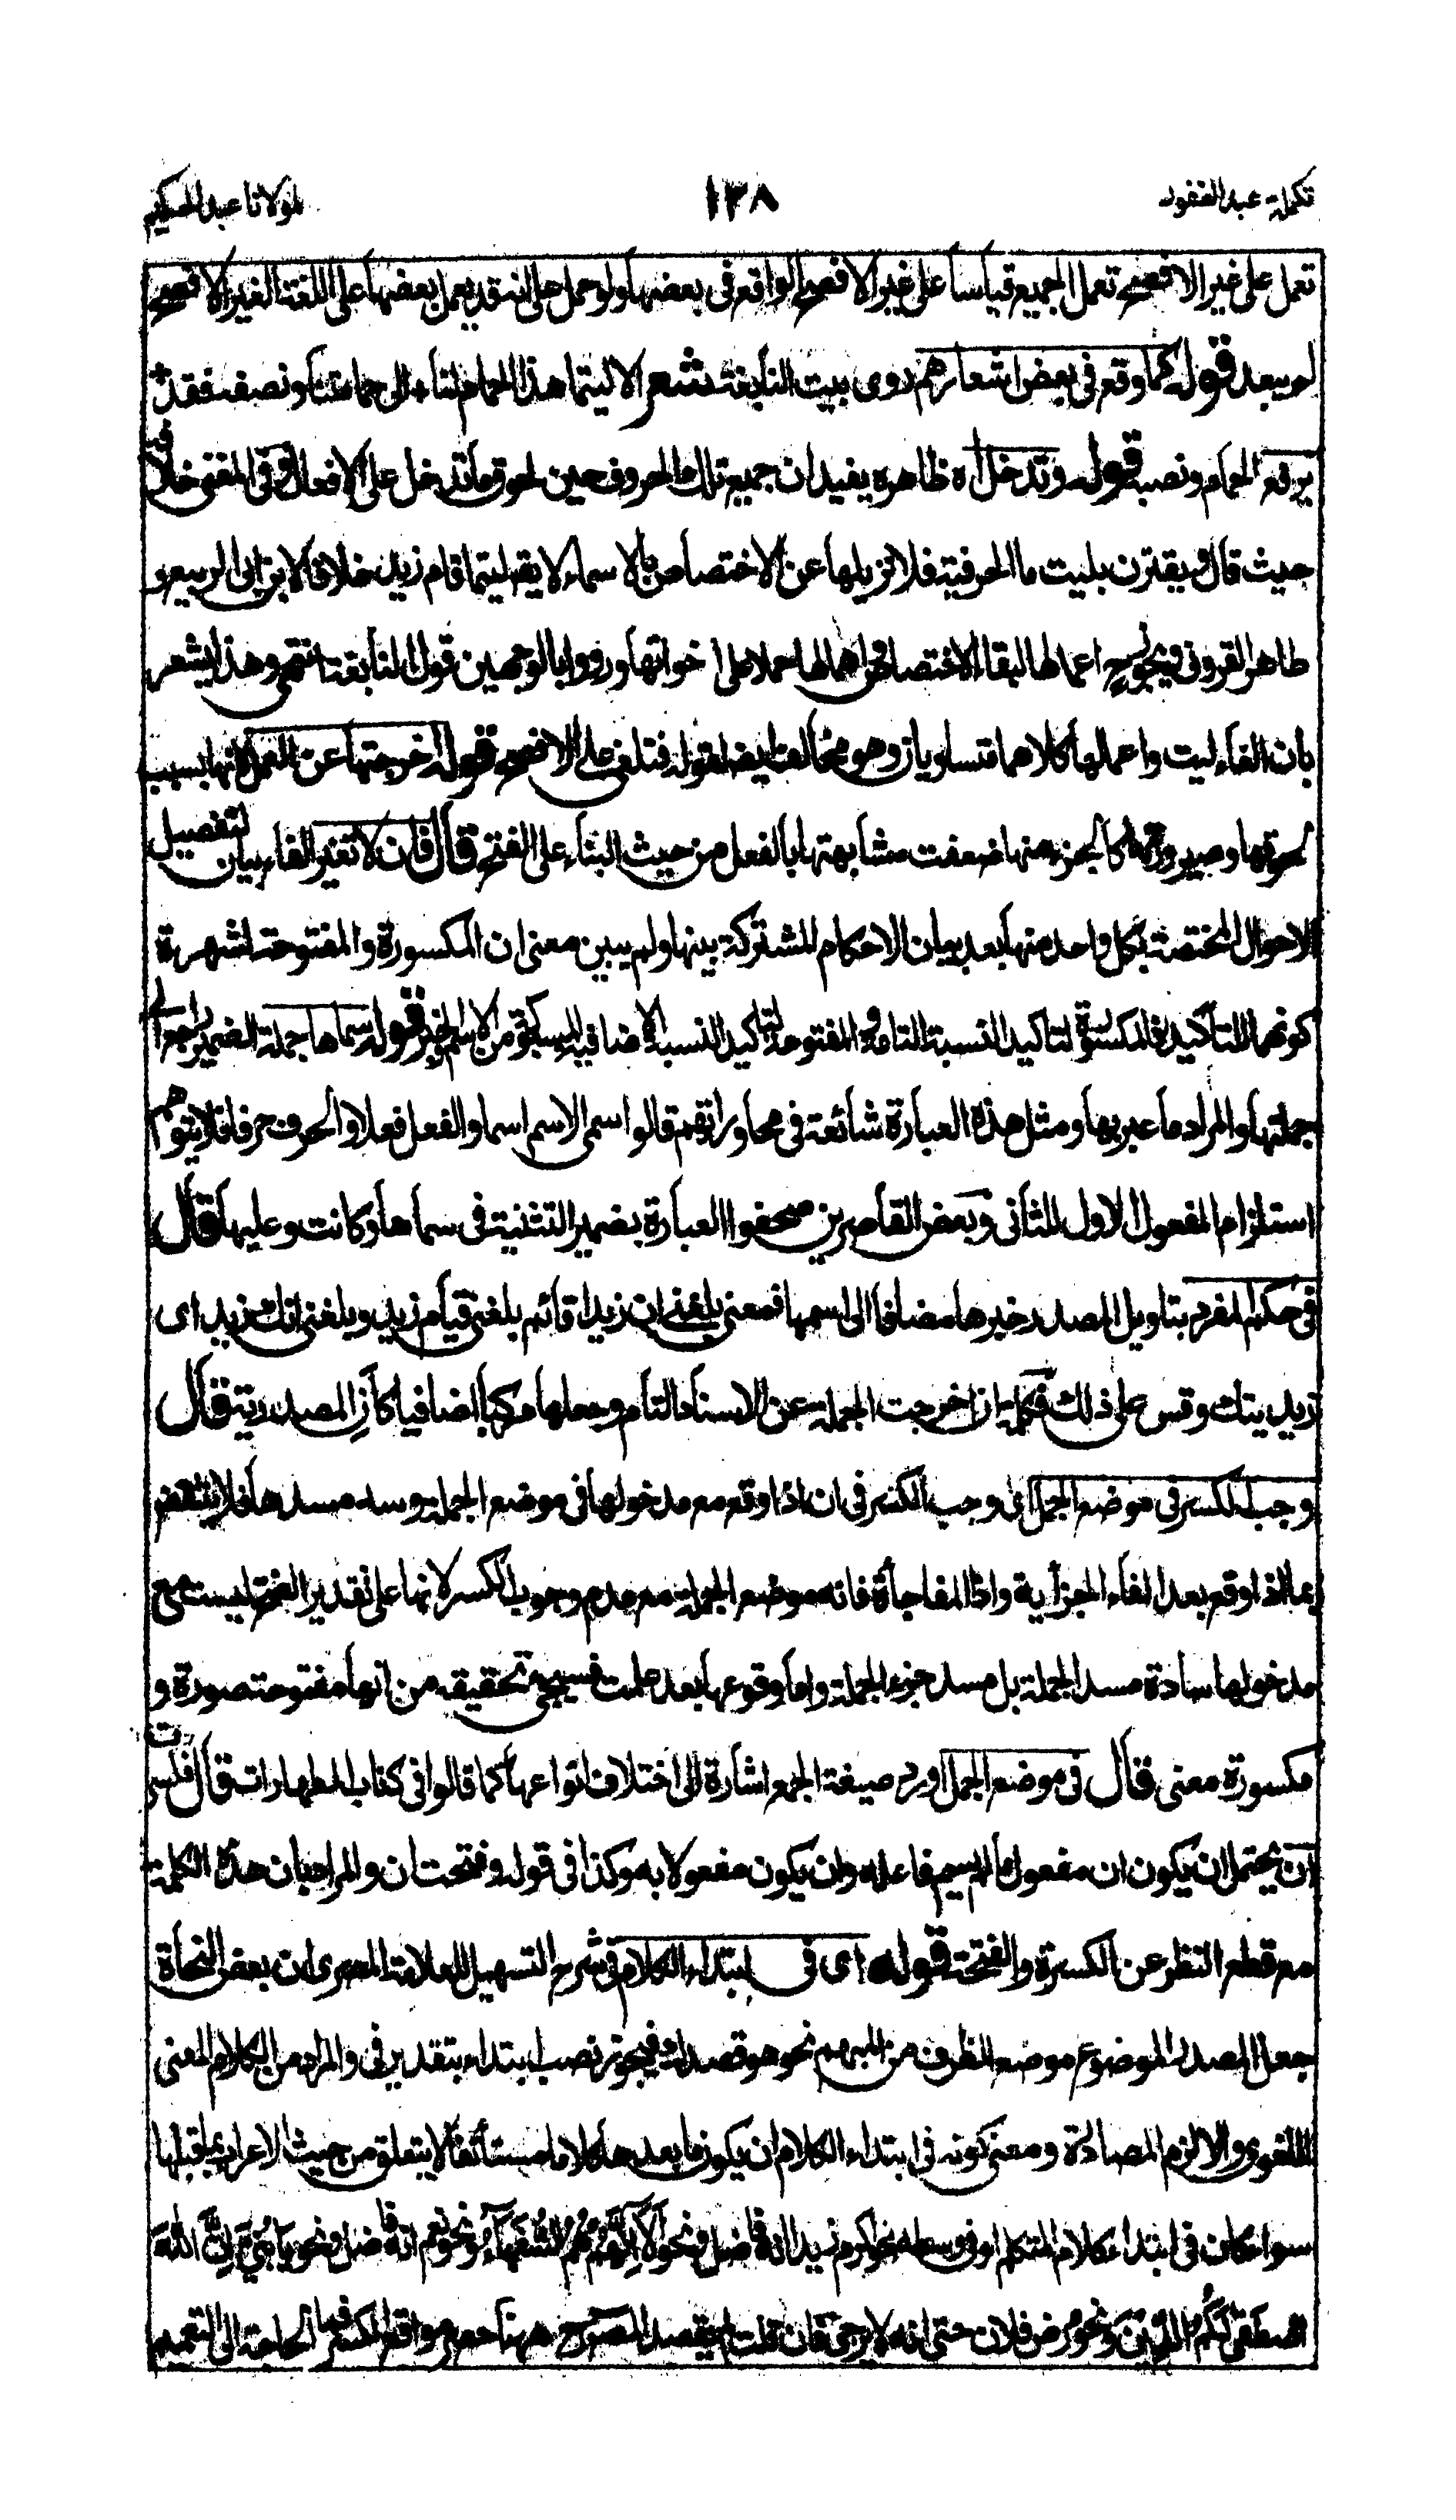 تكملة عبد الغفور
١٣٨
لمولانا عبد الحكيم
تعمل على غير الافصح تعمل الجميع قياسا على غير الافصح الواقع في بعضها ولو حمل على انه قد يعمل بعضها على اللغة الغير الافصح
لم يبعد قوله كما وقع في بعض اشعارهم روى بيت النابغة شعر الا ليتما هذا الحمام لنا الى حمامتنا ونصفه فقد
برفع الحمام ونصبه قوله وتدخل اه ظاهره يفيد ان جميع تلك الحروف حين لحوق ما تدخل على الافعال وفي المغني خلافه
حيث قال ويقترن بليت ما الحرفية فلا تزيلها عن الاختصاص بالاسماء لا يقال ليتما قام زيد خلافا لابن ابي الربيع و
طاهر القزوني ويجوز ح اعمالها لبقاء الاختصاص واهمالها حملا على اخواتها ورووا بالوجهين قول النابغة انتهى وهذا يشعر
بان الغاء ليت واعمالها كلاهما متساويان وهو مخالف ايضا لقوله فتلغى على الافصح قوله اخرجتها عن العمل لانها بسبب
لحوقها وصيرورتها كالجزء منها ضعفت مشابهتها بالفعل من حيث البناء على الفتح قال فان لا تغير الفاء بيان لتفصيل
الاحوال المختصة بكل واحد منها بعد بيان الاحكام المشتركة بينها ولم يبين معنى ان المكسورة والمفتوحة لشهرة
كونهما للتأكيد فالمكسورة لتاكيد النسبة التامة والمفتوحة لتاكيد النسبة الاضافية المسبوكة من الاسم والخبر قوله سماها جملة الضمير راجع الى
جملتها والمراد ما عبر بها ومثل هذه العبارة شائعة في محاوراتهم قالوا سمى الاسم اسما والفعل فعلا والحرف حرفا فلا يتوهم
استلزام المفعول الاول للثاني وبعض القاصرين صحفوا العبارة بضمير التثنية في سماها وكانت وعليها قال
في حكم المفرد بتاويل المصدر خبرها مضافا الى اسمها فمعنى بلغني ان زيدا قائم بلغني قيام زيد وبلغني انك زيد اى
زيديتك وقس على ذلك فكلمة ان اخرجت الجملة عن الاسناد التام وجعلها مركبا اضافيا كأن المصدرية قال
وجب الكسر في موضع الجمل اى وجب الكسر في ان اذا وقع مع مدخولها في موضع الجملة وسد مسدها فلا ينتقض
بما اذا وقع بعد الفاء الجزائية واذا المفاجأة فانه موضع الجملة مع عدم وجوب الكسر لانها على تقدير الفتح ليست مع
مدخولها سادة مسد الجملة بل مسد جزء الجملة واما وقوعها بعد علمت فسيجيئ تحقيقه من انها مفتوحة صورة و
مكسورة معنى قال في موضع الجمل اورد صيغة الجمع اشارة الى اختلاف انواعها كما قالوا في كتاب الطهارات قال فكسرت
ان يحتمل ان يكون ان مفعول ما لم يسم فاعله وان يكون مفعولا به وكذا في قوله وفتحت ان والمراد بان هذه الكلمة
مع قطع النظر عن الكسرة والفتحة قوله اى في ابتداء الكلام في شرح التسهيل للعلامة المصرى ان بعض النحاة
جعل المصدر الموضوع موضع الظرف من المبهم نحو هو قصدك فيجوز نصب ابتداء بتقدير في والمراد من الكلام المعنى
اللغوي والا لزم المصادرة ومعنى كونه في ابتداء الكلام ان يكون ما بعدها كلاما مستأنفا لا يتعلق من حيث الاعراب بما قبلها
سواء كان في ابتداء كلام المتكلم او في وسطه نحو اكرم زيدا انه فاضل ونحو اَلَا اِنَّهُمْ هُمُ السُّفَهَاءُ ونحو نعم انه فاضل ونحو يَا بَنِيَّ اِنَّ اللّٰهَ
اصْطَفٰى لَكُمُ الدِّيْنَ ونحو مرض فلان حتى انه لا يرجى فان قلت لم يقصد المصرح ههنا حصر مواقع الكسر فما الحاجة الى التعميم